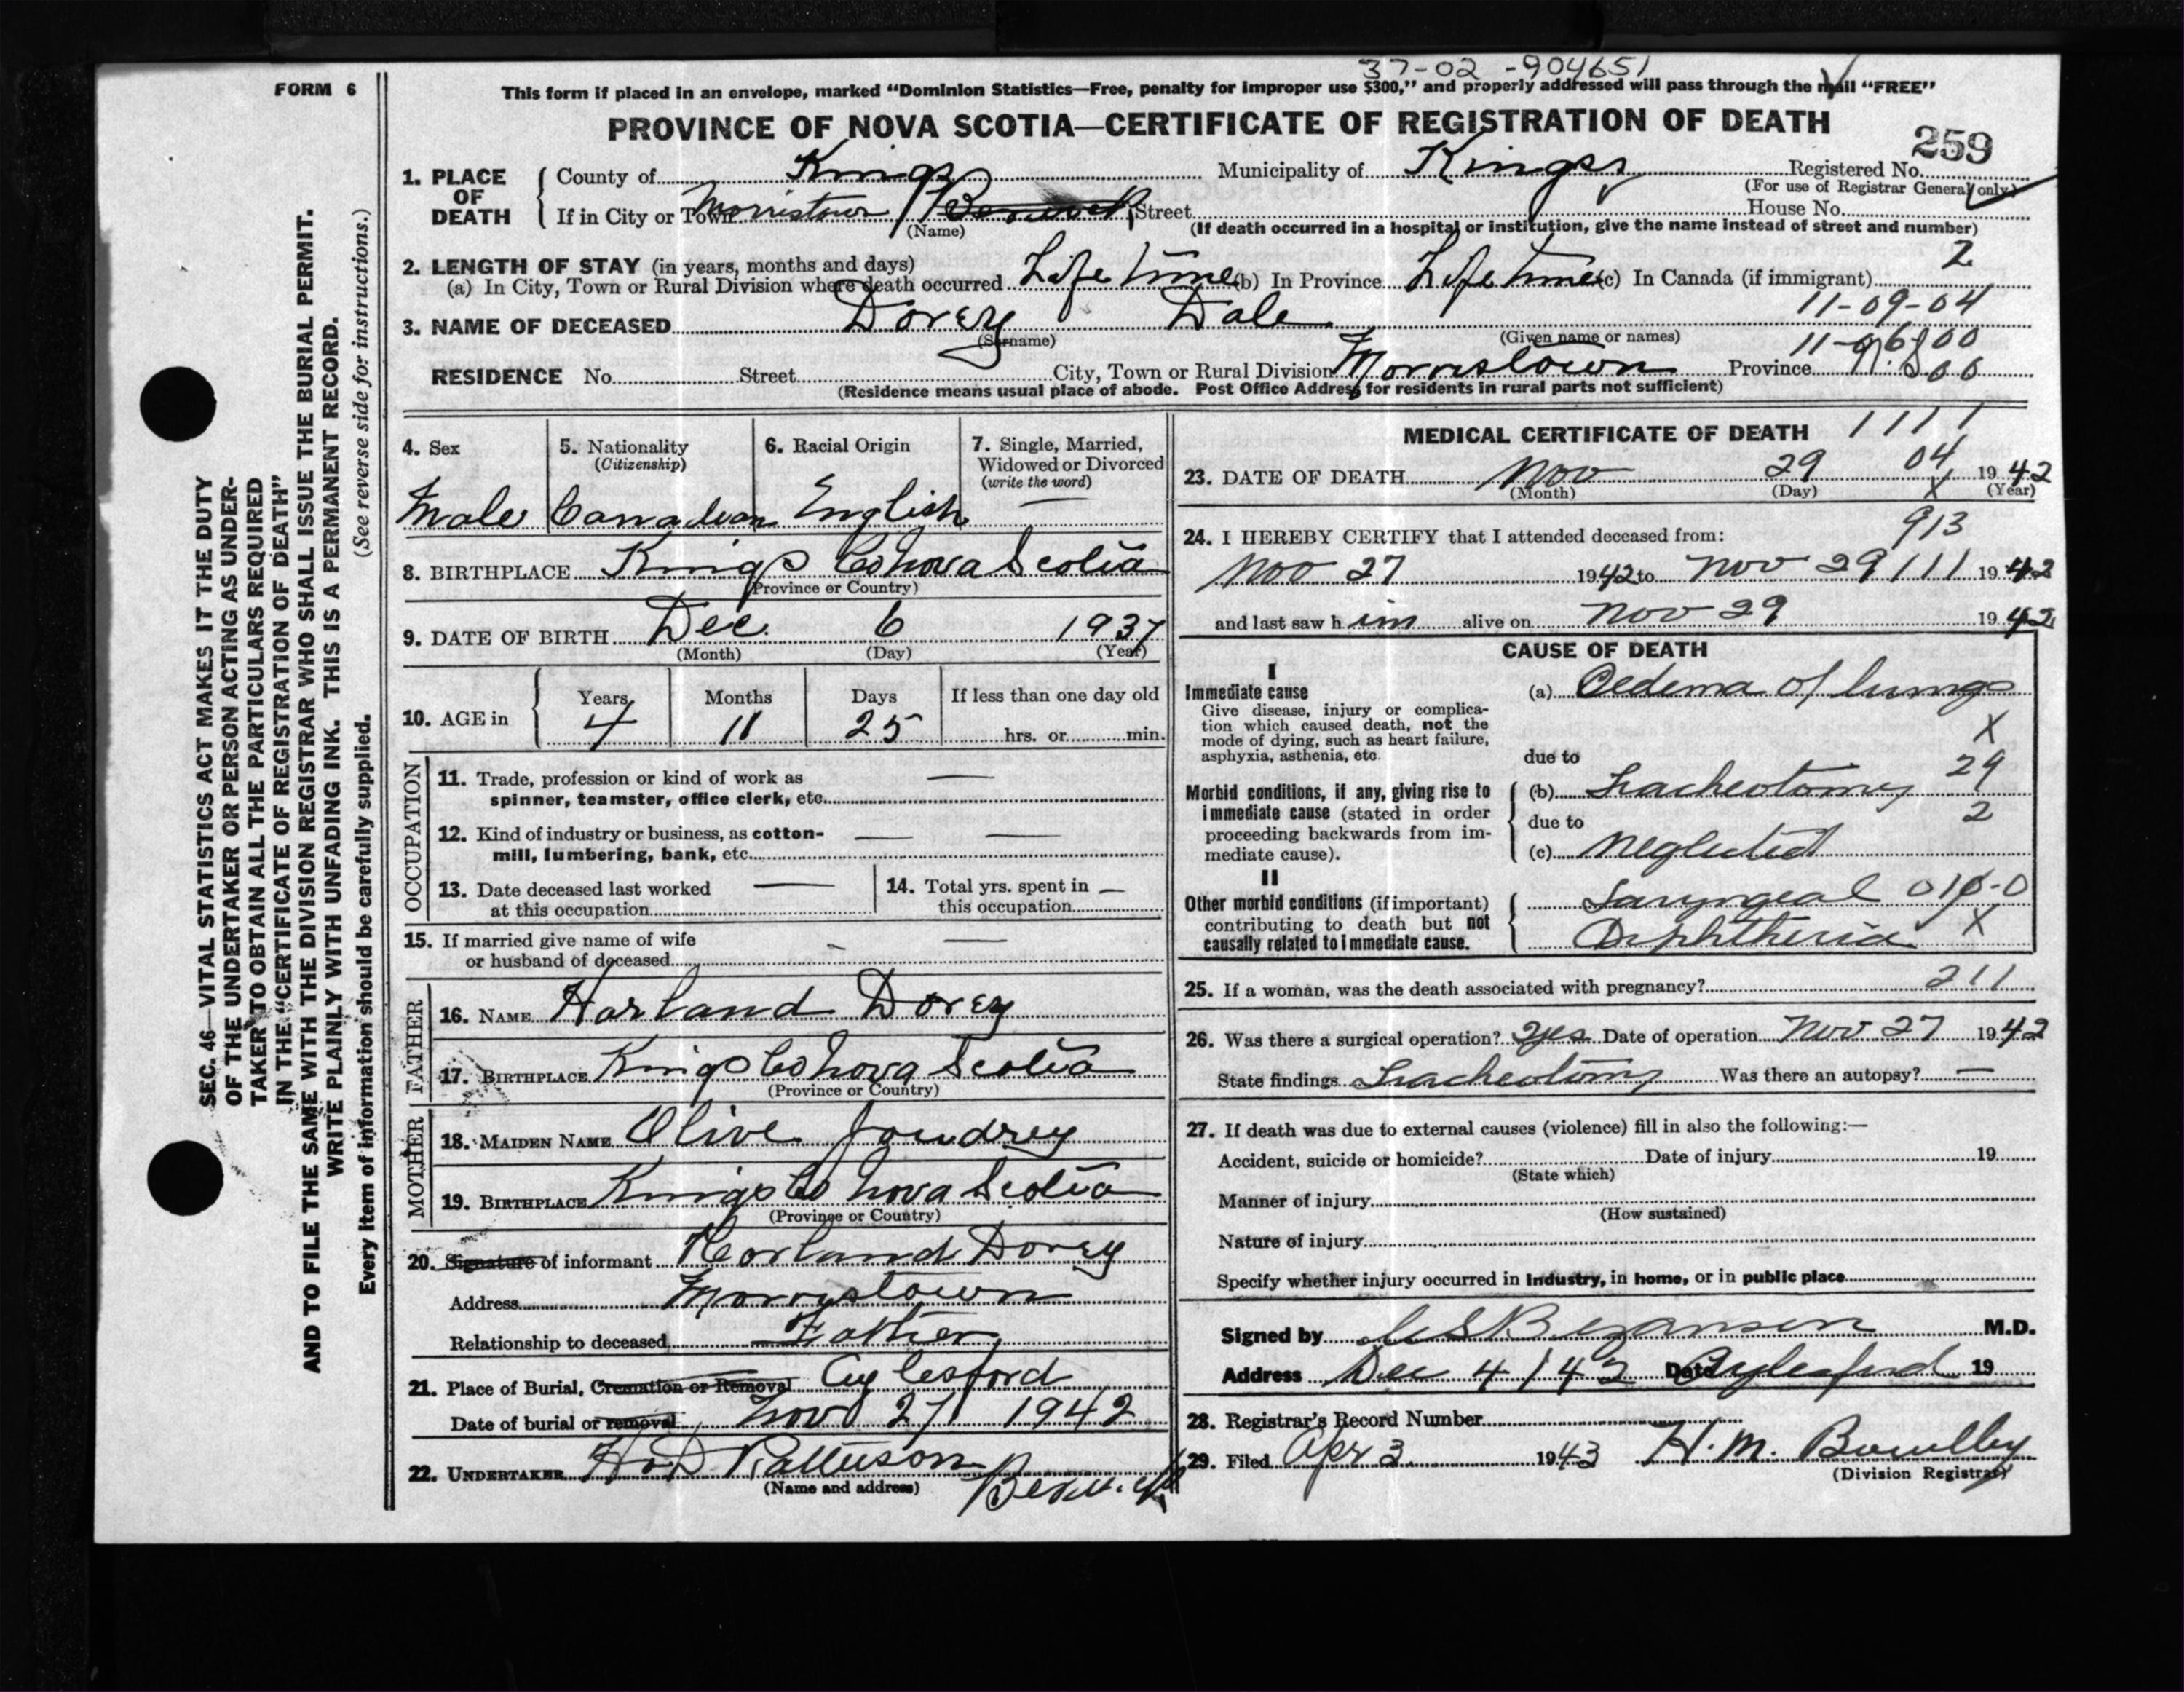 37-02-904651
FORM 6
This form if placed in an envelope, marked “Dominion Statistics—Free, penalty for improper use $300,” and properly addressed will pass through the mail “FREE”
PROVINCE OF NOVA SCOTIA—CERTIFICATE OF REGISTRATION OF DEATH
259
1. PLACE OF DEATH
County of Kings Municipality of Kings Registered No.
(For use of Registrar General only)
If in City or Town Morristown Berwick Street House No.
(Name) (If death occurred in a hospital or institution, give the name instead of street and number)
2. LENGTH OF STAY (in years, months and days) 2
(a) In City, Town or Rural Division where death occurred Life time (b) In Province Life time (c) In Canada (if immigrant)
11-09-04
3. NAME OF DECEASED Dorey Dale
(Surname) (Given name or names)
RESIDENCE No. Street City, Town or Rural Division Morristown Province N.S.
(Residence means usual place of abode. Post Office Address for residents in rural parts not sufficient)
4. Sex 5. Nationality (Citizenship) 6. Racial Origin 7. Single, Married, Widowed or Divorced (write the word)
Male Canadian English —
8. BIRTHPLACE Kings Co Nova Scotia
(Province or Country)
9. DATE OF BIRTH Dec. 6 1937
(Month) (Day) (Year)
10. AGE in Years Months Days If less than one day old
4 11 25 hrs. or min.
OCCUPATION
11. Trade, profession or kind of work as —
spinner, teamster, office clerk, etc.
12. Kind of industry or business, as cotton- — —
mill, lumbering, bank, etc.
13. Date deceased last worked — 14. Total yrs. spent in —
at this occupation this occupation
15. If married give name of wife - —
or husband of deceased
FATHER
16. NAME Harland Dorey
17. BIRTHPLACE Kings Co Nova Scotia
(Province or Country)
MOTHER
18. MAIDEN NAME Olive Joudrey
19. BIRTHPLACE Kings Co Nova Scotia
(Province or Country)
20. Signature of informant Harland Dorey
Address Morristown
Relationship to deceased Father
21. Place of Burial, Cremation or Removal Aylesford
Date of burial or removal Nov 27 1942
22. UNDERTAKER H.D Patterson
(Name and address) Berwick
MEDICAL CERTIFICATE OF DEATH 1111
23. DATE OF DEATH Nov 29 04 1942
(Month) (Day) X (Year)
24. I HEREBY CERTIFY that I attended deceased from: 913
Nov 27 1942 to Nov 29 111 1942
and last saw him alive on Nov 29 1942
CAUSE OF DEATH
I
Immediate cause (a) Oedema of lungs
Give disease, injury or complica-
tion which caused death, not the X
mode of dying, such as heart failure,
asphyxia, asthenia, etc. due to
Morbid conditions, if any, giving rise to (b) Tracheotomy 29
immediate cause (stated in order due to 2
proceeding backwards from im-
mediate cause). (c) Neglected
II
Other morbid conditions (if important) Laryngeal
contributing to death but not
causally related to immediate cause. Diphtheria X
25. If a woman, was the death associated with pregnancy? 211
26. Was there a surgical operation? Yes Date of operation Nov 27 1942
State findings Tracheotomy Was there an autopsy? —
27. If death was due to external causes (violence) fill in also the following:—
Accident, suicide or homicide? Date of injury 19
(State which)
Manner of injury
(How sustained)
Nature of injury
Specify whether injury occurred in Industry, in home, or in public place
Signed by Bezanson M.D.
Address Dec 4/42 Date Aylesford 19
28. Registrar's Record Number
29. Filed Apr 3 1943 H. M. Bowlby
(Division Registrar)
SEC. 46—VITAL STATISTICS ACT MAKES IT THE DUTY
OF THE UNDERTAKER OR PERSON ACTING AS UNDER-
TAKER TO OBTAIN ALL THE PARTICULARS REQUIRED
IN THE “CERTIFICATE OF REGISTRATION OF DEATH”
AND TO FILE THE SAME WITH THE DIVISION REGISTRAR WHO SHALL ISSUE THE BURIAL PERMIT.
WRITE PLAINLY WITH UNFADING INK. THIS IS A PERMANENT RECORD.
Every item of information should be carefully supplied. (See reverse side for instructions.)